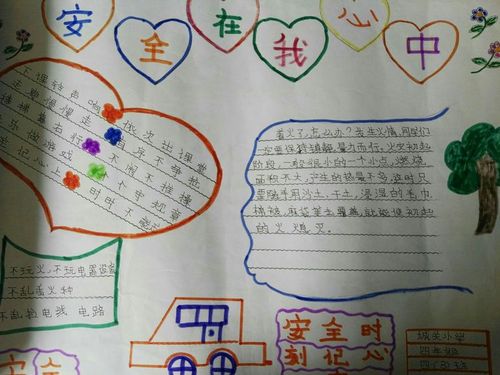 安全在我心中
下课铃声响 依次出课堂
走路慢慢走 有序不争抢
楼梯靠右行 不闹不推撞
玩乐做游戏 个个守规章
牢记心上 时时不
着火了,怎么办?发生火情,同学们
一定要保持镇静,量力而行。火灾初起
阶段,一般很小的一个小点,燃烧
面积不大,产生的热量不多。这时只
要随手用沙土、干土、浸湿的毛巾、
棉被、麻袋等去覆盖,就能使初起
的火熄灭。
不玩火,不玩电器设备
不乱丢火种
不乱拉电线 电路
安全
安全时
刻记心
城关小学
四年级